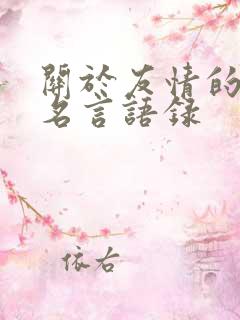 關於友情的
名言語錄
依右